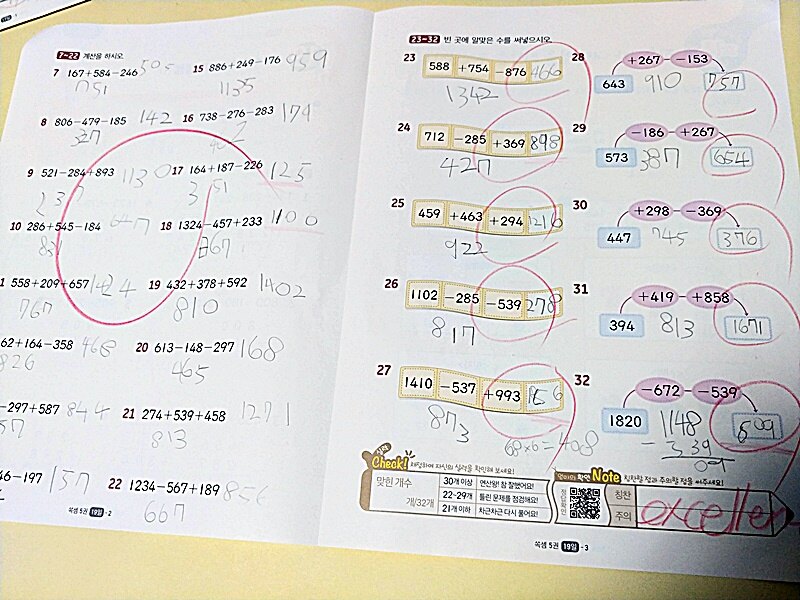 7~22 계산을 하시오.
7 167+584-246 505
751
15 886+249-176 959
1135
8 806-479-185 142
327
16 738-276-283 179
9 521-284+893 1130
237
17 164+187-226 125
351
10 286+545-184 647
831
18 1324-457+233 1100
867
1 558+209+657 1424
767
19 432+378+592 1402
810
62+164-358 468
826
20 613-148-297 168
465
-297+587 844
57
21 274+539+458 1271
813
46-197 157
22 1234-567+189 856
667
쏙셈 5권 19일 - 2
23~32 빈 곳에 알맞은 수를 써넣으시오.
23
588 +754 -876 466
1342
24
712 -285 +369 898
427
25
459 +463 +294 1216
922
26
1102 -285 -539 278
817
27
1410 -537 +993
873
68×6=408
28
+267 -153
643 910 757
29
-186 +267
573 387 654
30
+298 -369
447 745 376
31
+419 +858
394 813 1671
32
-672 -539
1820 1148 609
- 539
09
Check! 채점하여 자신의 실력을 확인해 보세요!
맞힌 개수
개/32개
30개 이상 연산왕! 참 잘했어요!
22-29개 틀린 문제를 점검해요!
21개 이하 차근차근 다시 풀어요!
엄마의 확인 Note 칭찬할 점과 주의할 점을 써주세요!
정답 확인
칭찬
주의
excellen
쏙셈 5권 19일 - 3